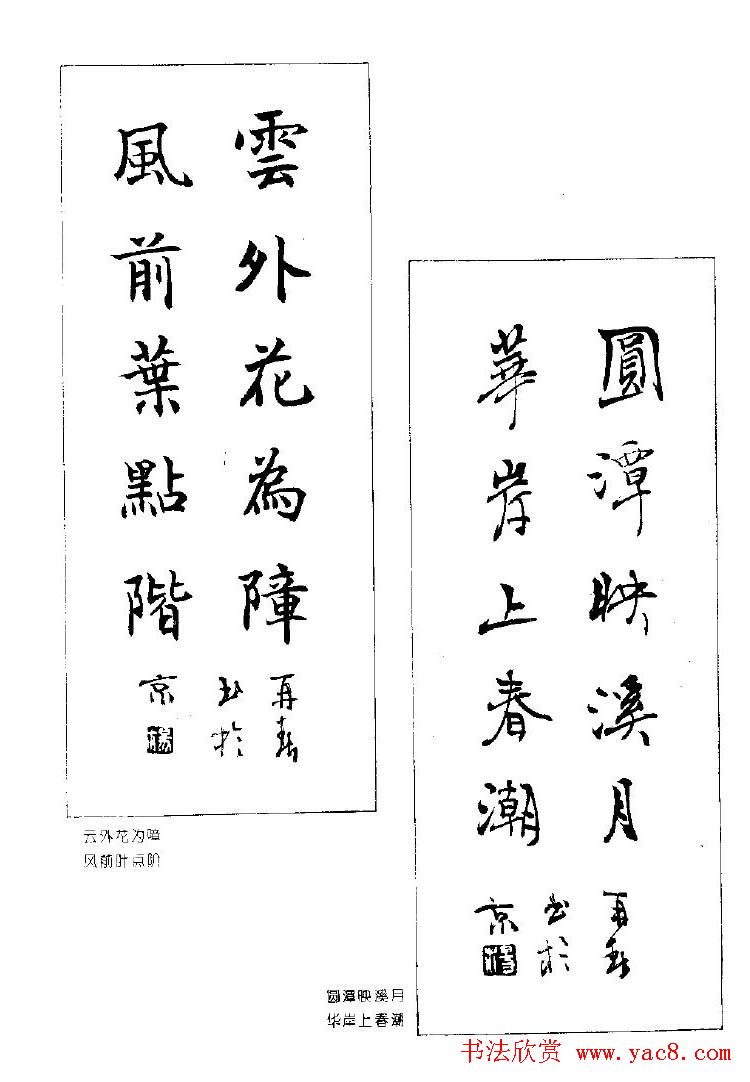 雲外花為障
風前葉點階
再春
书於
京
楊
云外花为障
风前叶点阶
圓潭映溪月
華岸上春潮
再春
书於
京
楊
圆潭映溪月
华岸上春潮
书法欣赏 www.yac8.com